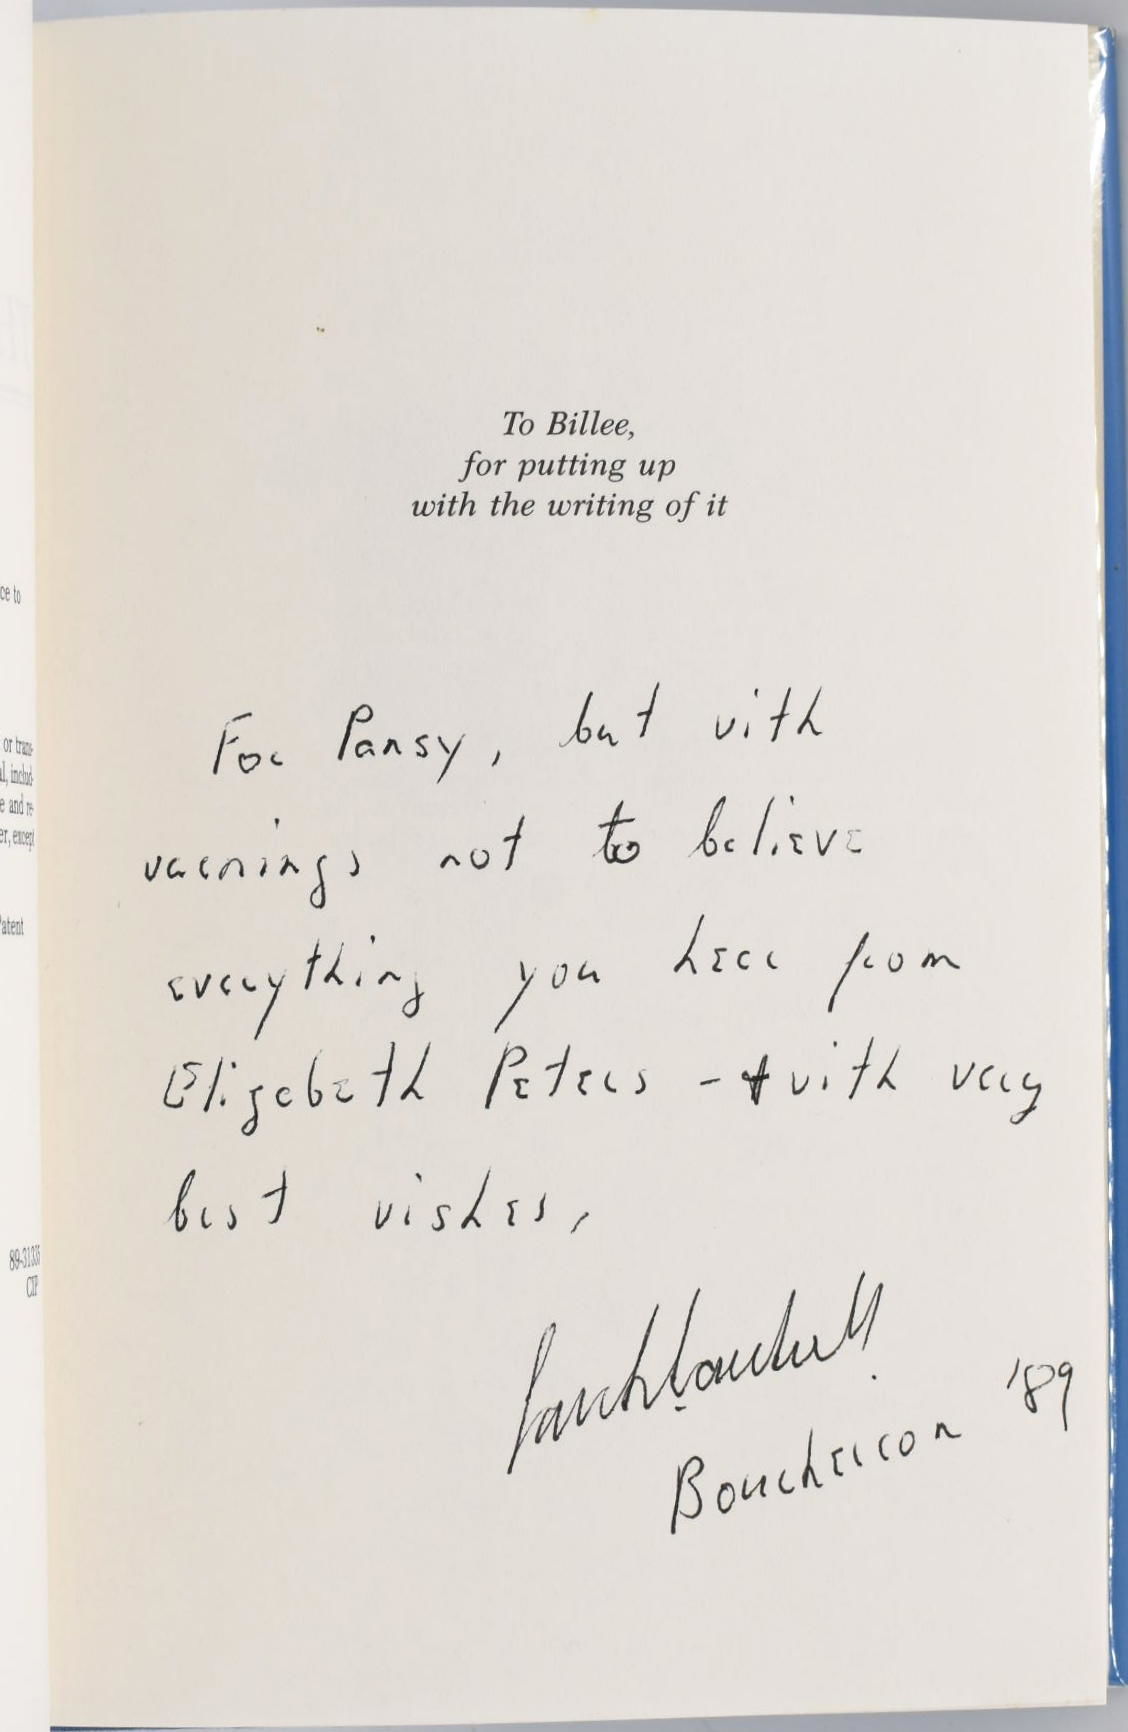 To Billee,
for putting up
with the writing of it
For Pansy, but with
warnings not to believe
everything you hear from
Elizabeth Peters – + with very
best wishes,
Bouchercon '89
ce to
or trans-
al, includ-
e and re-
er, except
Patent
89-31335
CIP